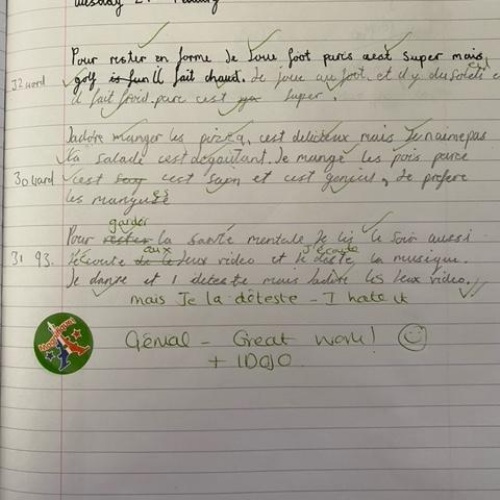 Pour rester en forme Je Joue foot paris cest super mais
32 word golf is fun il fait chaud. Je joue au foot. et il y du soleil c
il fait froid parc cest super.
J'adore manger les pizza, cest delicieux mais Je naime pas
la salade cest degoutant. Je mange les pois parce
30 word cest cest sain et cest genial, Je prefere
les mangue
garder
Pour rester la santé mentale Je lis le soir aussi
aux J'écoute
31 93. J'écoute de le Jeux video et la musique.
Je danze et I deteste mais Jadore les Jeux video.
mais Je la déteste - I hate it
Génial - Great work!
+ 1DOJO